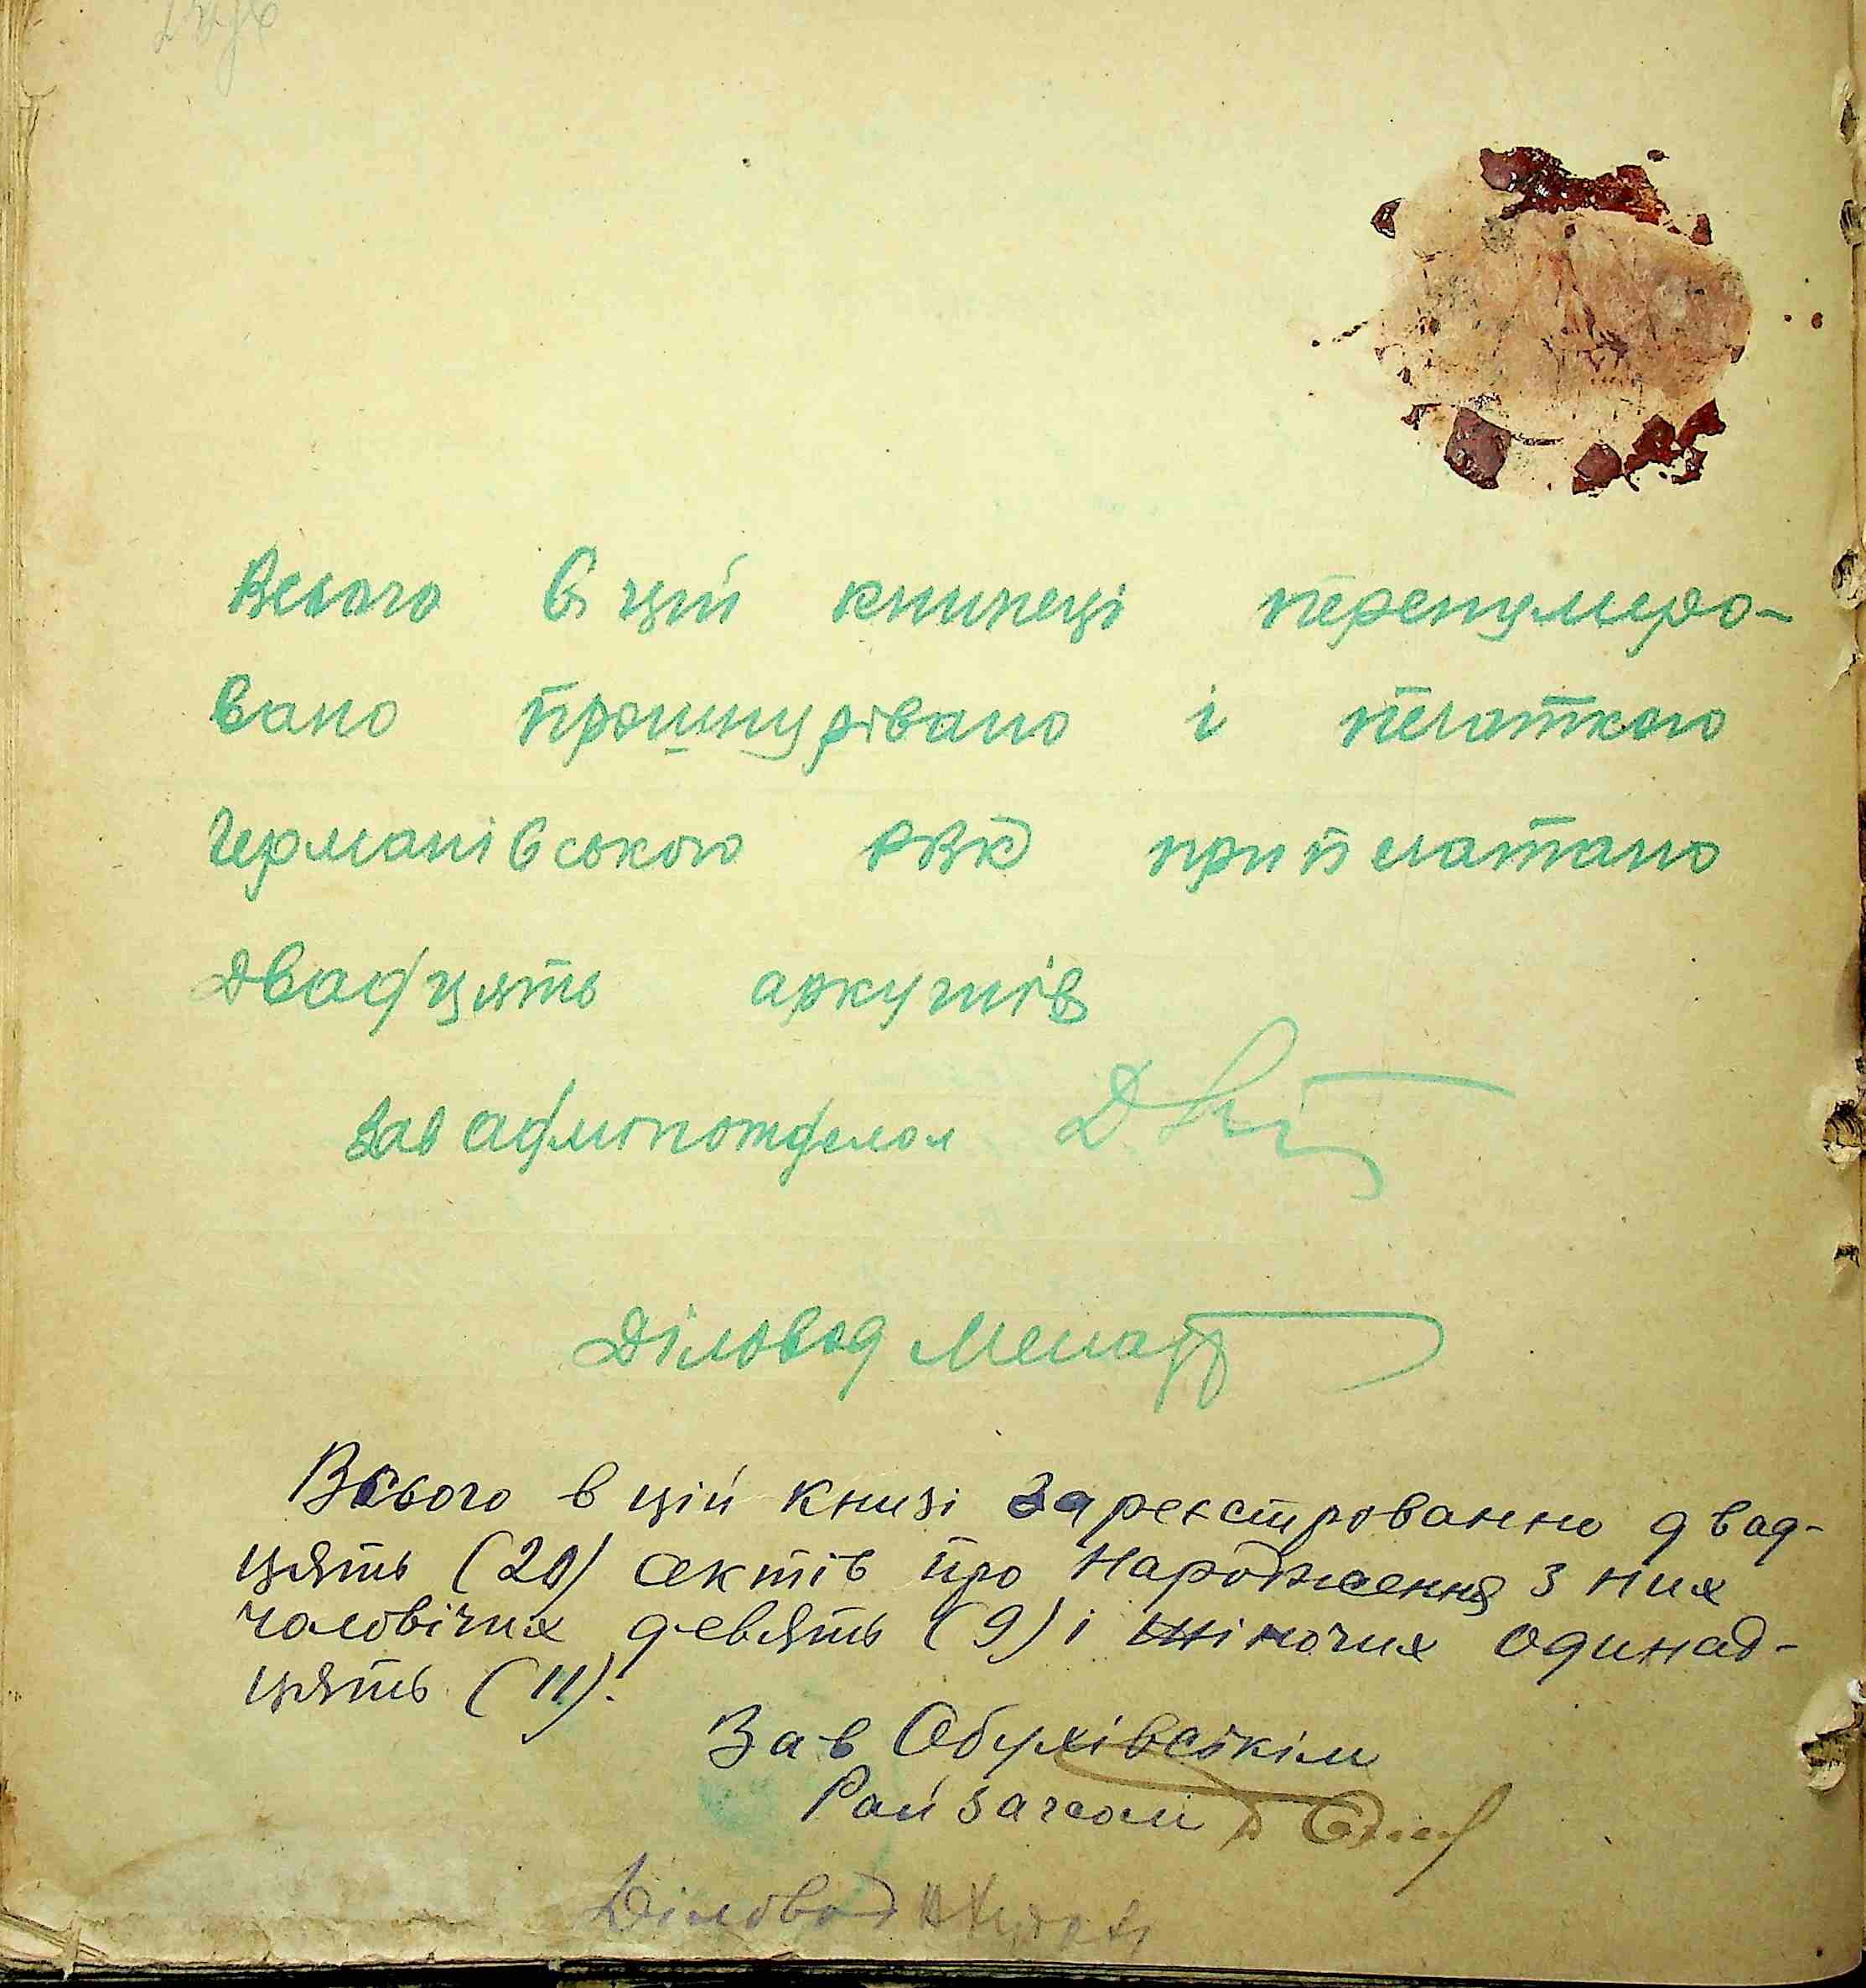 Всього в цій книжеці перенумеро-
вано прошнуровано і печаткою
Германівського РВК припечатано
Двадцять аркушів
Зав адмінотделом
Діловод
Всього в цій книзі зареєстрованно двад-
цять (20) актів про народження з них
чоловічих девять (9) і жіночих одинад-
цять (11).
Зав Обухівскім
Райзагсом
Діловод